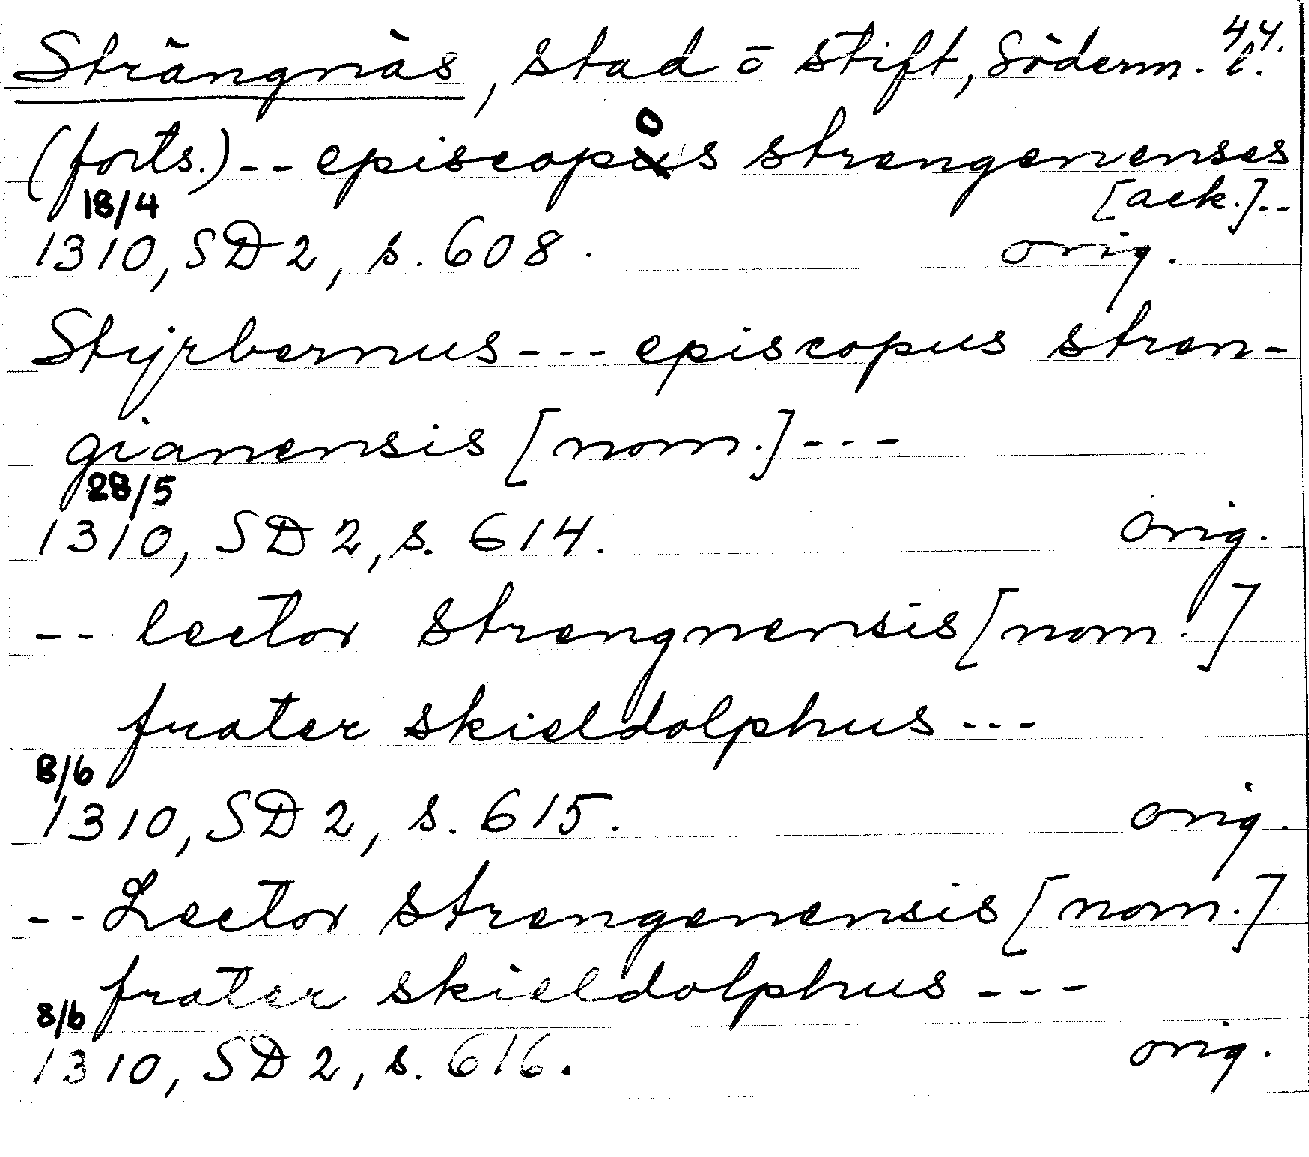 Strängnäs, stad o stift, Söderm. l. 44.
(forts.) -- episcopos strengenenses
[ack.]--
18/4
1310, SD 2, s. 608. orig.
Styrbernus --- episcopus stren-
gianensis [nom.] ---
28/5
1310, SD 2, s. 614. orig.
-- lector strengnensis [nom.]
frater skieldolphus ---
8/6
1310, SD 2, s. 615. orig.
-- Lector strengenensis [nom.]
frater skieldolphus ---
8/6
1310, SD 2, s. 616. orig.